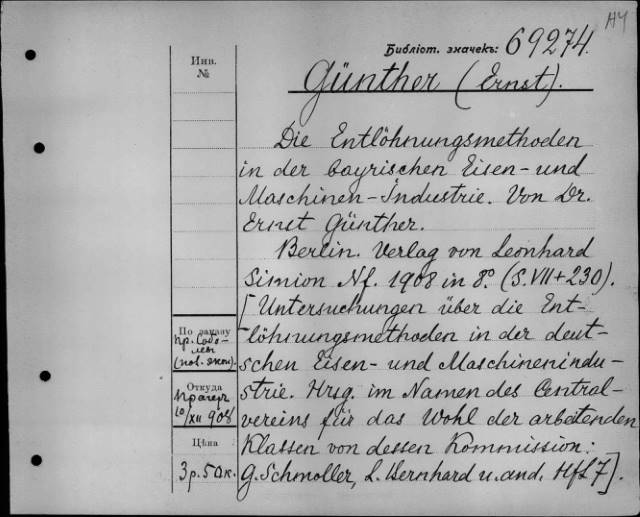 АЧ
Библіот. значекъ: 69274.
Günther (Ernst).
Инв.
№
Die Entlöhnungsmethoden
in der bayrischen Eisen- und
Maschinen-Industrie. Von Dr.
Ernst Günther.
Berlin. Verlag von Leonhard
Simion Nf. 1908 in 8º. (S. VII + 230).
[Untersuchungen über die Ent-
löhnungsmethoden in der deut-
schen Eisen- und Maschinenindu-
strie. Hrsg. im Namen des Central-
vereins für das Wohl der arbeitenden
Klassen von dessen Kommission:
G. Schmoller, L. Bernhard u. and. Hft 7].
По заказу
пр. Собо-
лева
Откуда
Прагеръ
10/XII 908
Цѣна
3 р. 50 к.